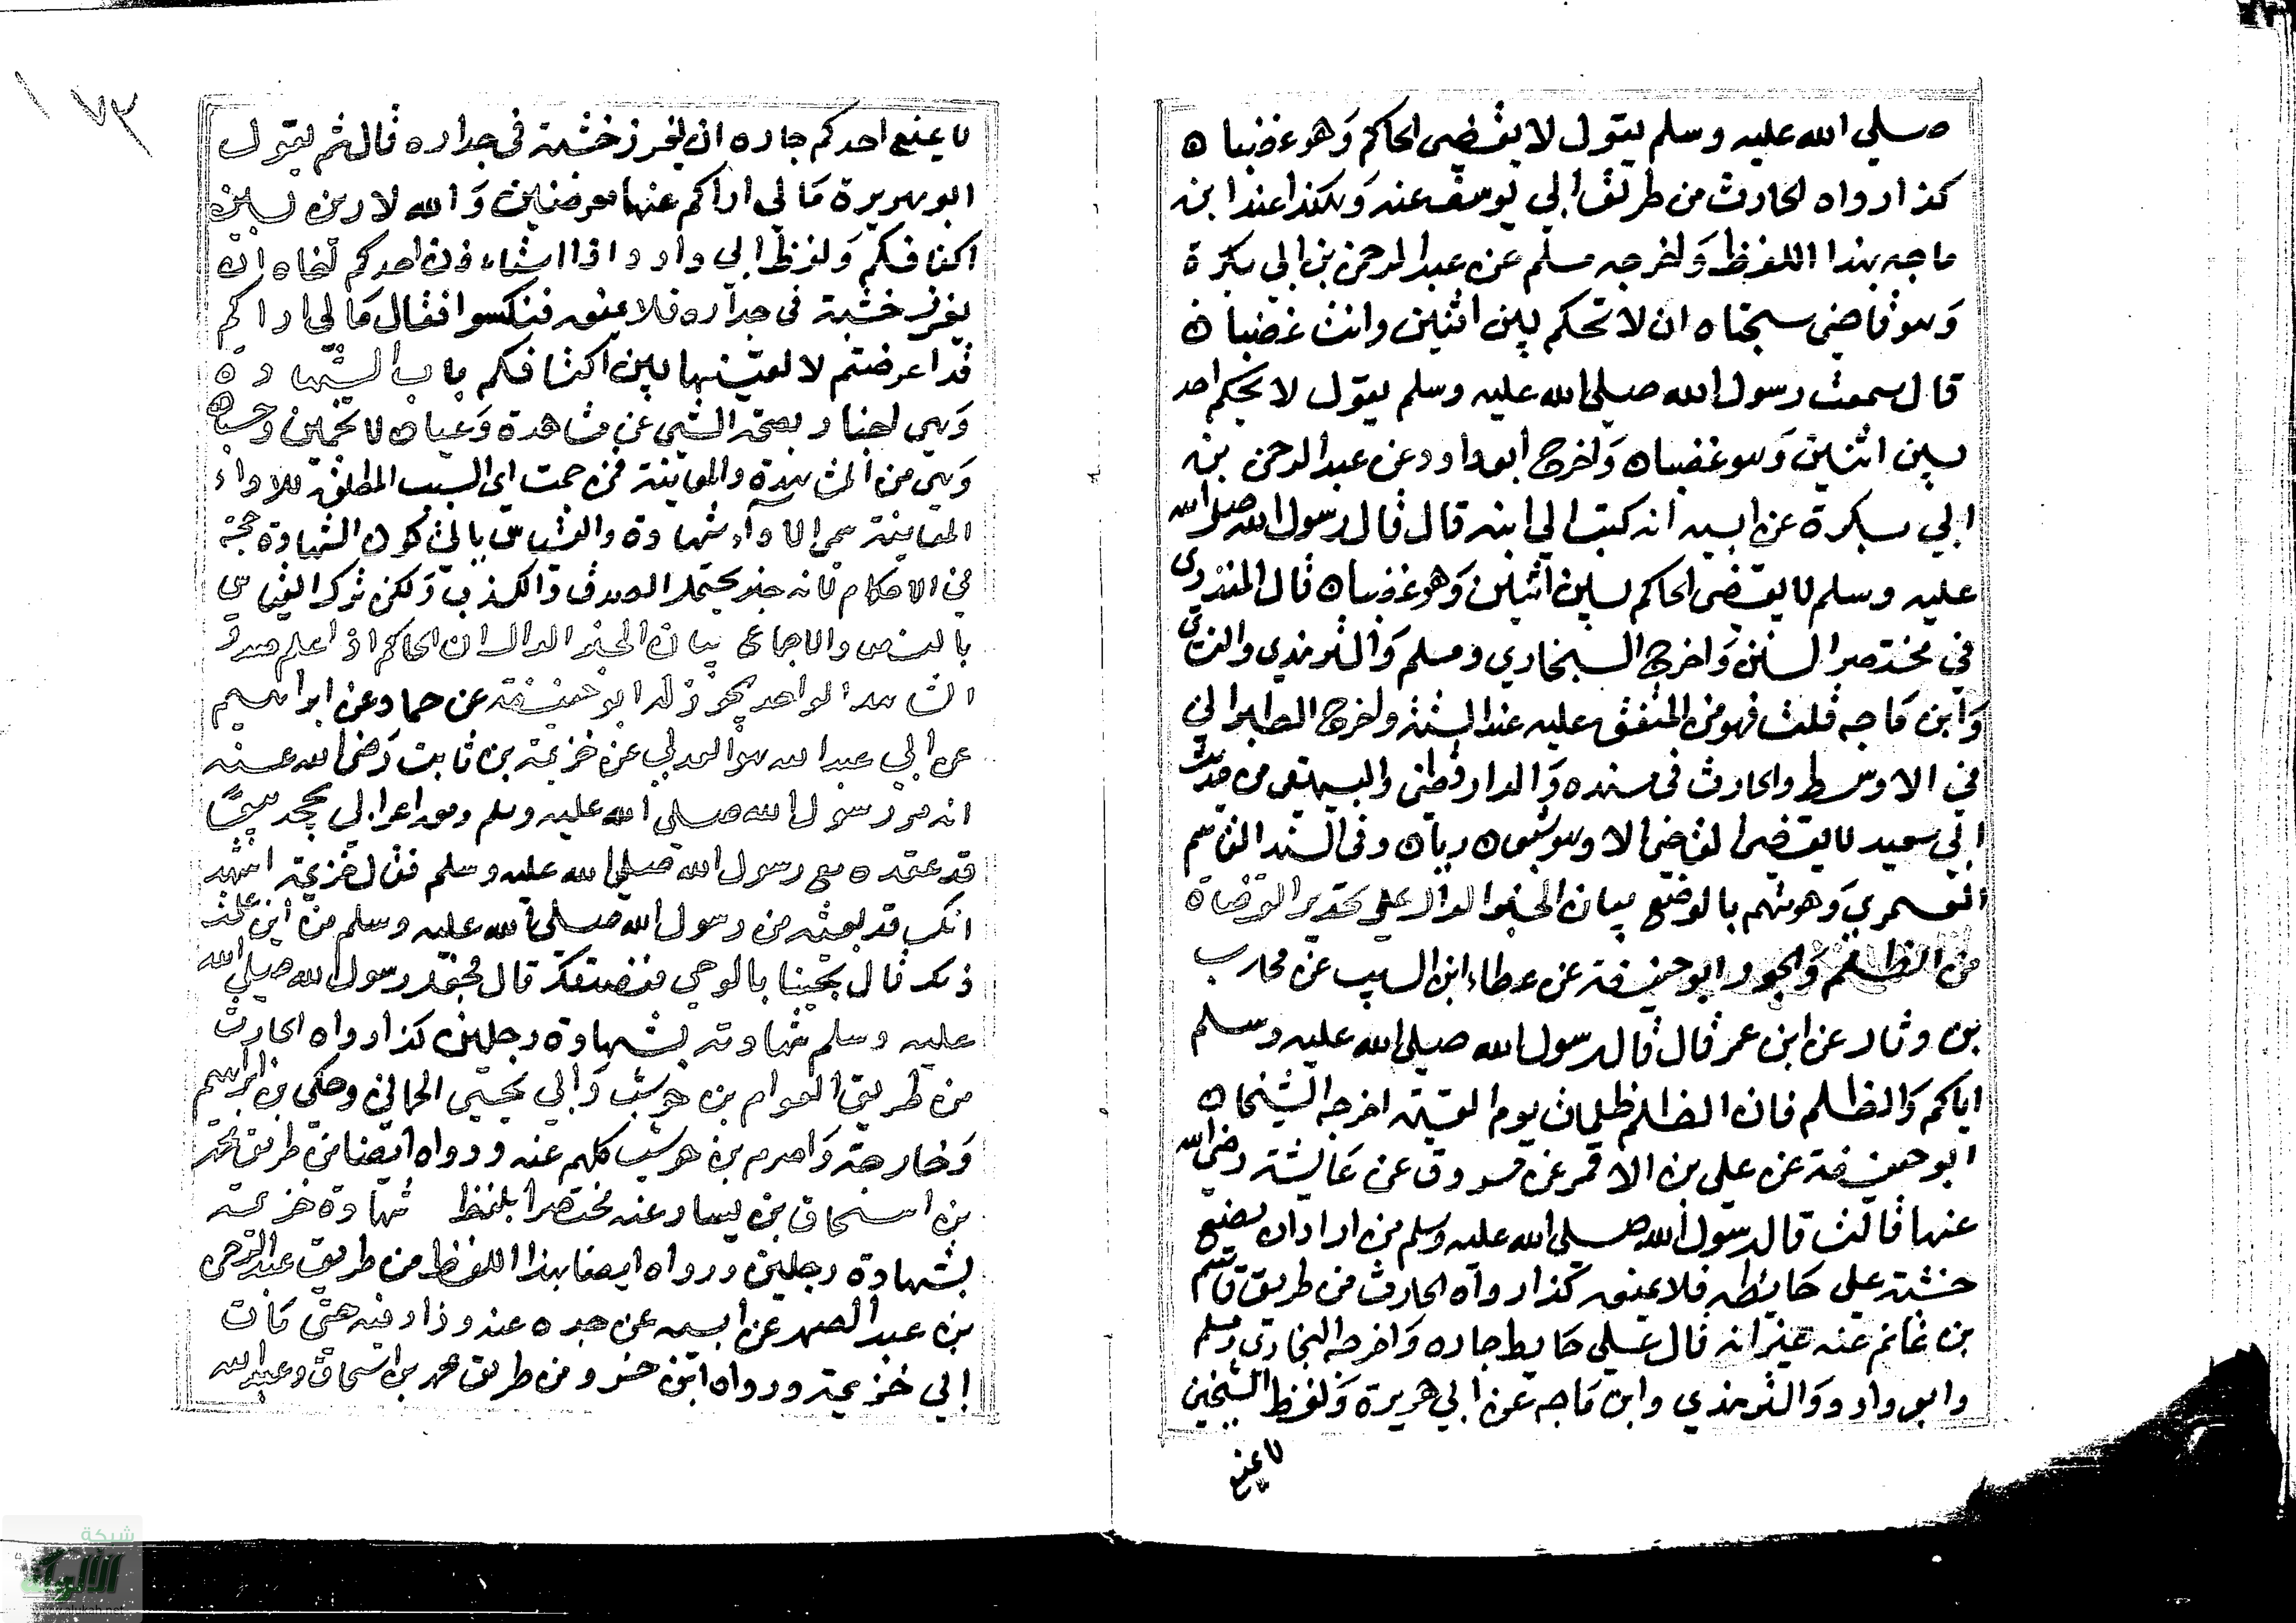 صلي الله عليه وسلم يقول لا يقضي الحاكم وهو غضبان
كذا رواه الحارث من طريق ابي يوسف عنه وهكذا عند ابن
ماجه بهذا اللفظ واخرجه مسلم عن عبد الرحمن بن ابي بكرة
وهو قاضي سجستان ان لا تحكم بين اثنين وانت غضبان
قال سمعت رسول الله صلي الله عليه وسلم يقول لا يحكم احد
بين اثنين وهو غضبان واخرج ابو داود عن عبد الرحمن بن
ابي بكرة عن ابيه انه كتب الي ابنه قال قال رسول الله صلي الله
عليه وسلم لا يقضي الحاكم بين اثنين وهو غضبان قال المنذري
في مختصر السنن واخرج البخاري ومسلم والترمذي والنسائي
وابن ماجه قلت فهو من المتفق عليه عند الستة واخرج الطبراني
في الاوسط والحارث في مسنده والدارقطني والبيهقي من حديث
ابي سعيد لا يقضي القاضي الا وهو شبعان ريان وفي السند القاسم
العمري وهو متهم بالوضع بيان الخبر الدال علي تحذير القضاة
من الظلم والجور ابو حنيفة عن عطاء ابن السايب عن محارب
بن دثار عن ابن عمر قال قال رسول الله صلي الله عليه وسلم
اياكم والظلم فان الظلم ظلمات يوم القيمة اخرجه الشيخان
ابو حنيفة عن علي بن الاقمر عن مسروق عن عايشة رضي الله
عنها قالت قال رسول الله صلي الله عليه وسلم من اراد ان يضع
خشبة علي حايطه فلا يمنعه كذا رواه الحارث من طريق قاسم
بن غانم عنه غير انه قال علي حايط جاره واخرجه البخاري ومسلم
وابو داود والترمذي وابن ماجه عن ابي هريرة ولفظ الشيخين
لا يمنع
١٧٣
لا يمنع احدكم جاره ان يغرز خشبة في جداره قال ثم يقول
ابو هريرة ما لي اراكم عنها معرضين والله لارمين بها بين
اكتافكم ولفظ ابي داود اذا استاذن احدكم اخاه ان
يغرز خشبة في جداره فلا يمنعه فنكسوا فقال ما لي اراكم
قد اعرضتم لا لقينها بين اكتافكم باب الشهادة
وهي اخبار بصحة الشي عن مشاهدة وعيان لا تخمين وحسبان
وهي من المشاهدة والمعاينة فمن حيث اي السبب المطلق للاداء
المعاينة سمي الاداء شهادة والقياس يابي كون الشهادة حجة
في الاحكام لانه خبر يحتمل الصدق والكذب ولكن ترك القياس
بالنص والاجماع بيان الخبر الدال ان الحاكم اذا علم صدق
الشاهد الواحد يجوز له ابو حنيفة عن حماد عن ابراهيم
عن ابي عبد الله هو الجدلي عن خزيمة بن ثابت رضي الله عنه
انه مر رسول الله صلي الله عليه وسلم وهو اعرابي يجحد بيعا
قد عقده مع رسول الله صلي الله عليه وسلم فقال خزيمة اشهد
انك قد بعته من رسول الله صلي الله عليه وسلم من اين علمت
ذلك قال تجيئنا بالوحي فنصدقك قال فجعل رسول الله صلي الله
عليه وسلم شهادته بشهادة رجلين كذا رواه الحارث
من طريق العوام بن حوشب وابي يحيي الحماني ومكي بن ابراهيم
وخارجة واصرم بن حوشب كلهم عنه ورواه ايضا من طريق محمد
بن اسحاق بن يسار عنه مختصرا بلفظ شهادة خزيمة
بشهادة رجلين ورواه ايضا بهذا اللفظ من طريق عبد الرحمن
بن عبد الصمد عن ابيه عن جده عنه وزاد فيه حتي مات
ابي خزيمة ورواه ابن خسرو من طريق محمد بن اسحاق وعبد الله
شبكة
الألوكة